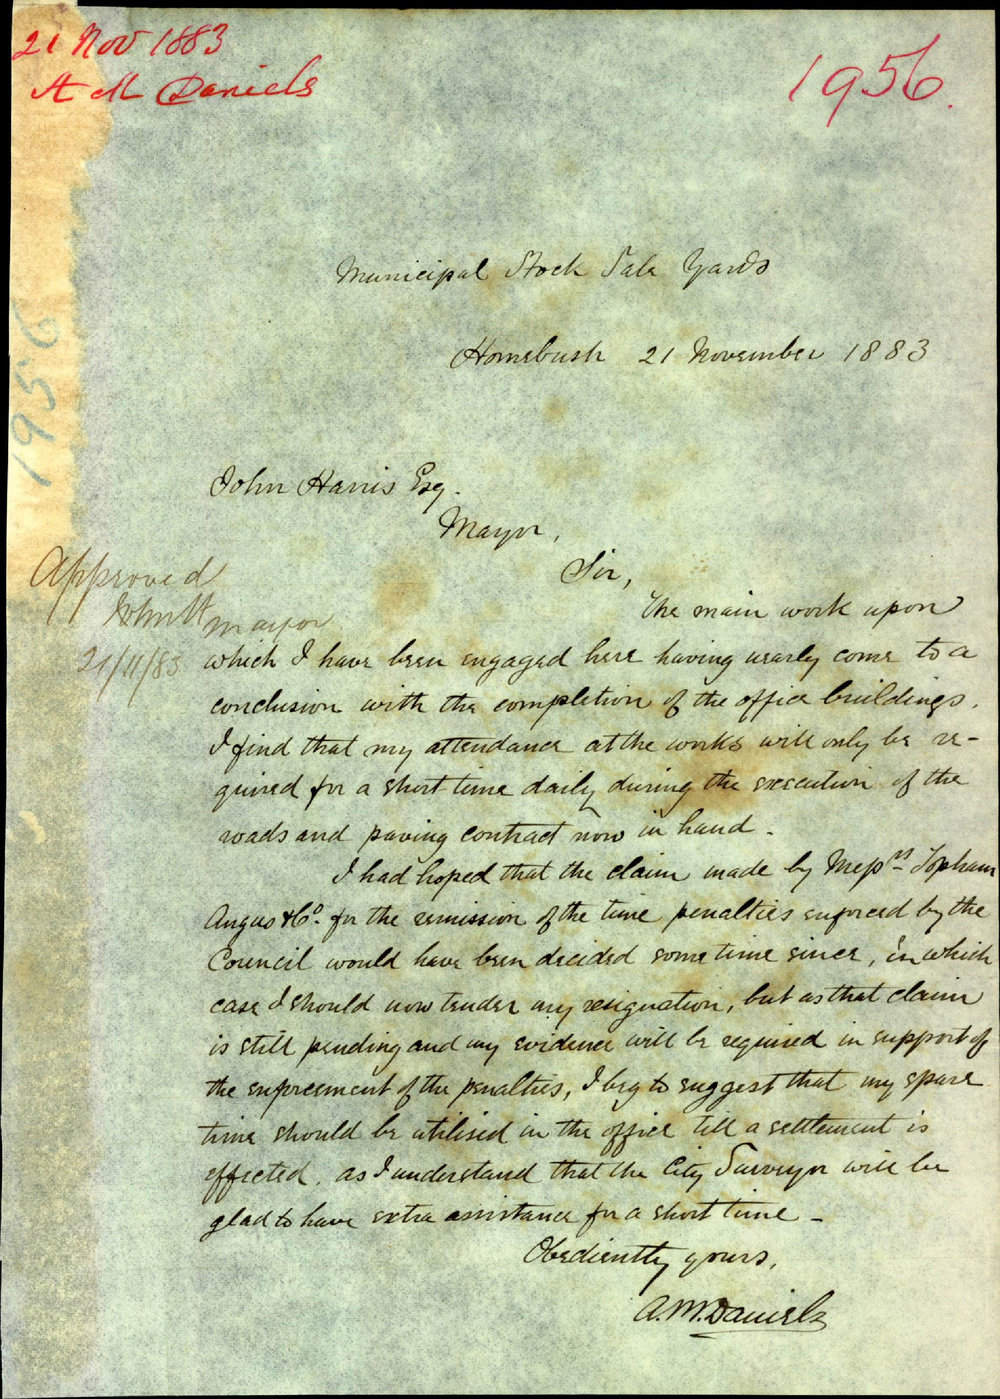 21 Nov 1883
A M Daniels
1956.
1956
Municipal Stock Sale Yards
Homebush 21 November 1883
John Harris Esq.
Mayor,
Sir,
Approved
John H
mayor
21/11/83
The main work upon
which I have been engaged here having nearly come to a
conclusion with the completion of the office buildings.
I find that my attendance at the works will only be re-
quired for a short time daily during the execution of the
roads and paving contract now in hand -
I had hoped that the claim made by Messrs Topham
Angus & Co. for the remission of the time penalties enforced by the
Council would have been decided some time since, in which
case I should now tender my resignation, but as that claim
is still pending and my evidence will be required in support of
the enforcement of the penalties, I beg to suggest that my spare
time should be utilised in the office till a settlement is
effected. as I understand that the City Surveyor will be
glad to have extra assistance for a short time -
Obediently yours,
A.M. Daniels